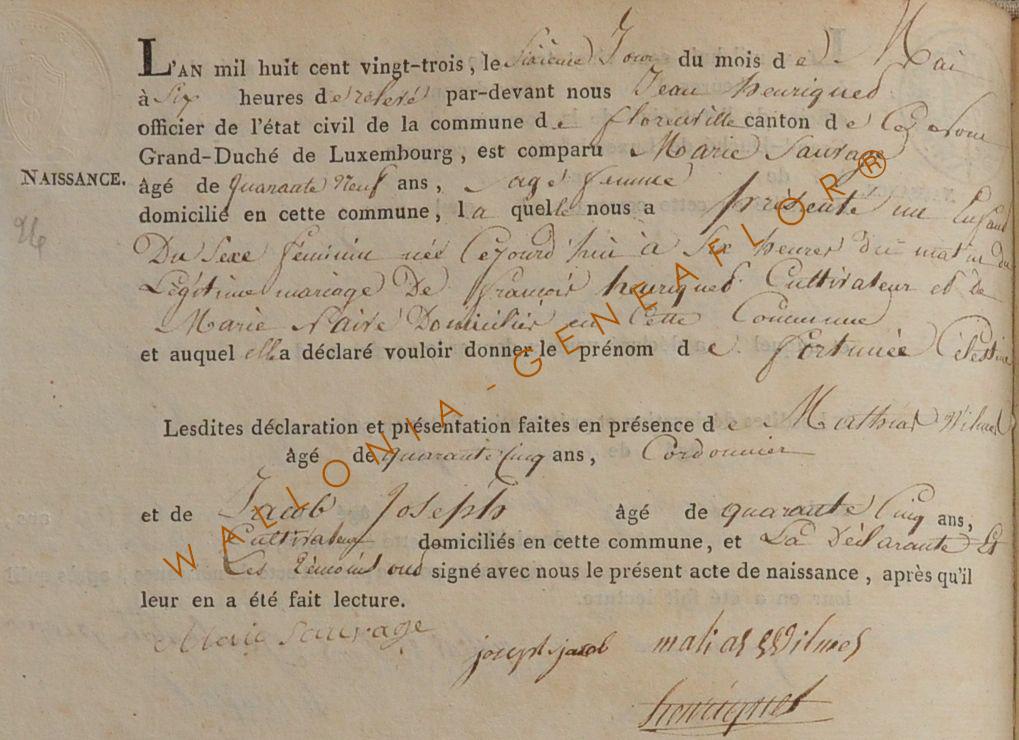 L'AN mil huit cent vingt-trois, le Sixieme Jour du mois de Mai
à Six heures de relevé par-devant nous Jean henriquet
officier de l'état civil de la commune de florenville canton de
Grand-Duché de Luxembourg, est comparu Marie Sauvage
NAISSANCE. âgé de quarante neuf ans, sage femme
domicilié en cette commune, la quelle nous a présenté un Enfant
Du Sexe féminin née Cejourd'hui à Six heures du matin du
Légitime mariage De françois henriquet Cultivateur et de
Marie Domiciliés en Cette Commune
et auquel elle a déclaré vouloir donner le prénom de fortunée Célestine
Lesdites déclaration et présentation faites en présence de Mathias Wilmes
âgé de quarante Cinq ans, Cordonnier
et de Jacob Joseph âgé de quarante Cinq ans,
Cultivateur domiciliés en cette commune, et La Déclarante Et
Les témoins ont signé avec nous le présent acte de naissance, après qu'il
leur en a été fait lecture.
Marie Sauvage
joseph jacob matias Wilmes
henriquet
WALLONIA - GENEAFLOR®